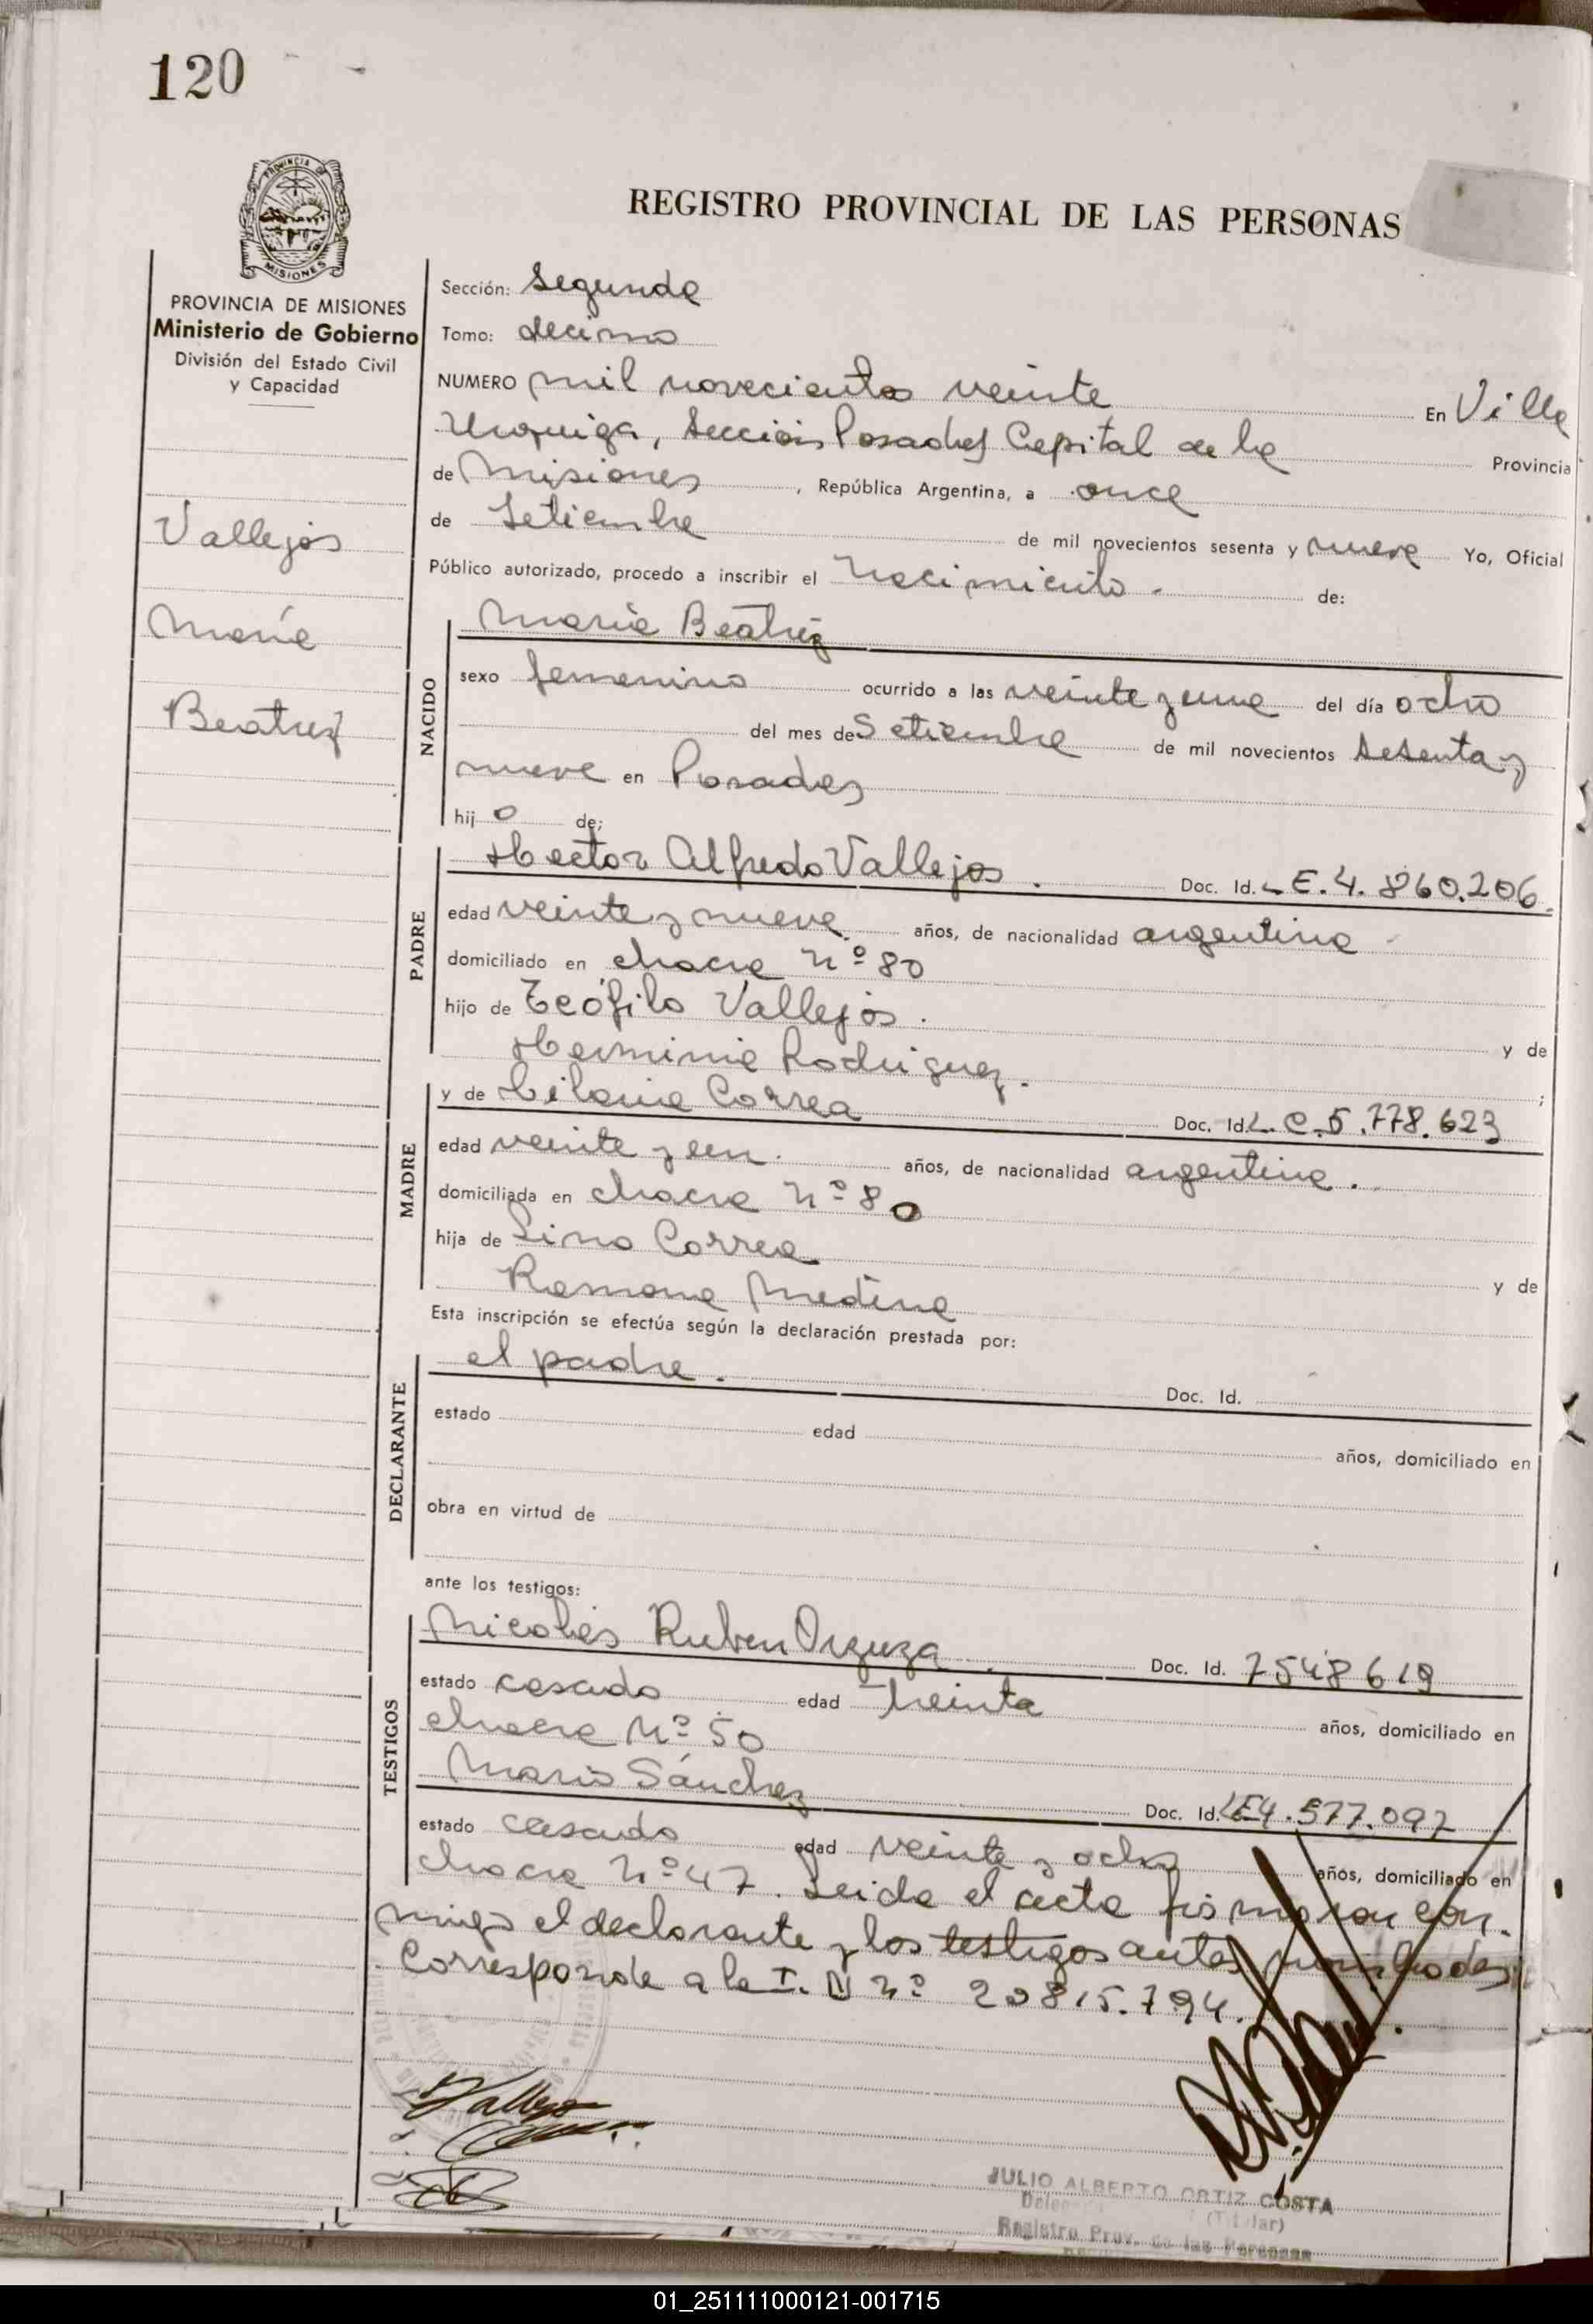 120
PROVINCIA DE
MISIONES
REGISTRO PROVINCIAL DE LAS PERSONAS
PROVINCIA DE MISIONES
Ministerio de Gobierno
División del Estado Civil
y Capacidad
Vallejos
María
Beatriz
Sección: Segunda
Tomo: decimo
NUMERO mil novecientos veinte En Villa
Urquiza, Sección Posadas Capital de la Provincia
de Misiones, República Argentina, a once
de Setiembre de mil novecientos sesenta y nueve Yo, Oficial
Público autorizado, procedo a inscribir el Nacimiento. de:
NACIDO
María Beatriz
sexo femenino ocurrido a las veinte y una del día ocho
del mes de Setiembre de mil novecientos sesenta y
nueve en Posadas
hij a de;
PADRE
Hector Alfredo Vallejos. Doc. Id. L E. 4. 860.206.
edad veinte y nueve años, de nacionalidad argentina
domiciliado en chacra nº 80
hijo de Teófilo Vallejos.
y de
Herminia Rodriguez. ;
MADRE
y de Lilania Correa Doc. Id. L. C. 5.778.623
edad veinte y un. años, de nacionalidad argentina.
domiciliada en chacra nº 80
hija de Lino Correa
y de
Ramona Medina
Esta inscripción se efectúa según la declaración prestada por:
DECLARANTE
el padre. Doc. Id.
estado edad años, domiciliado en
obra en virtud de
ante los testigos:
TESTIGOS
Nicolás Ruben Doc. Id. 7548619
estado casado edad treinta años, domiciliado en
chacra Nº 50
Mario Sánchez Doc. Id. LE4.577.092
estado casado edad veinte y ocho años, domiciliado en
chacra nº 47. Leida el acta firmaron con-
migo el declarante y los testigos antes nombrados
Corresponde a la I. N nº 20815.794.
Vallejos
JULIO ALBERTO ORTIZ COSTA
(Titular)
Registro Prov. de las Personas
01_251111000121-001715